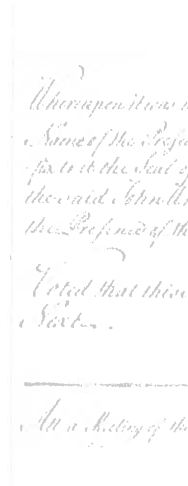 Whereupon it was
Name of the Presi
fix to it the Seal of
the said John
the Presence of th
Voted that this
Next
At a Meeting of the